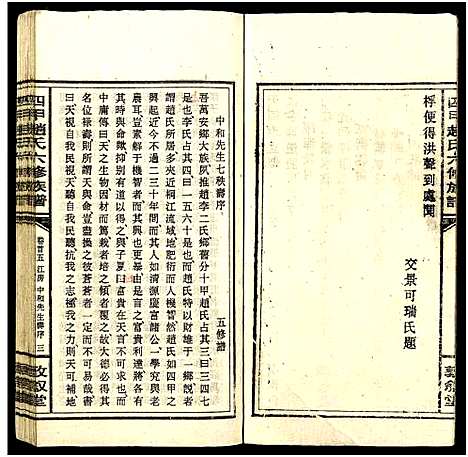 四甲趙氏六修族譜
桴便得洪聲到處聞
交景可瑞氏題
中和先生七秩壽序
五修譜
吾萬安鄉大族夙推趙李二氏鄉舊分十甲趙氏占二三四七
李氏占一五六十是也而趙氏特以財雄于一鄉說者
謂趙氏所居多夾近桐江流域地肥衍而人機智然如四甲之
興起於近今不過二三十年間有如清源慶富諸公一學究與老
農耳豈嘗解於機智者而其後之富貴利達將各有
其時與命歟抑別有道以致之與子夏曰富貴在天言不可求也
中庸傳曰天之生物因材而篤栽者培之傾者覆之故大德必得其
名位祿壽則所謂天與命者豈盡操之彼蒼蒼者一定而不可易哉書
曰天視自我民視天聽自我民聽抗我之志極我之力則天可補地
四甲趙氏六修族譜
卷首五 江房 中和先生壽序 三
敦叙堂